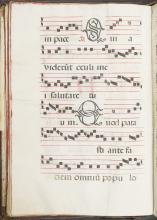 in pace Q uia
viderūt oculi me
i salutare tu
um Q uod para
sti ante fa
ciem omniū popu lo